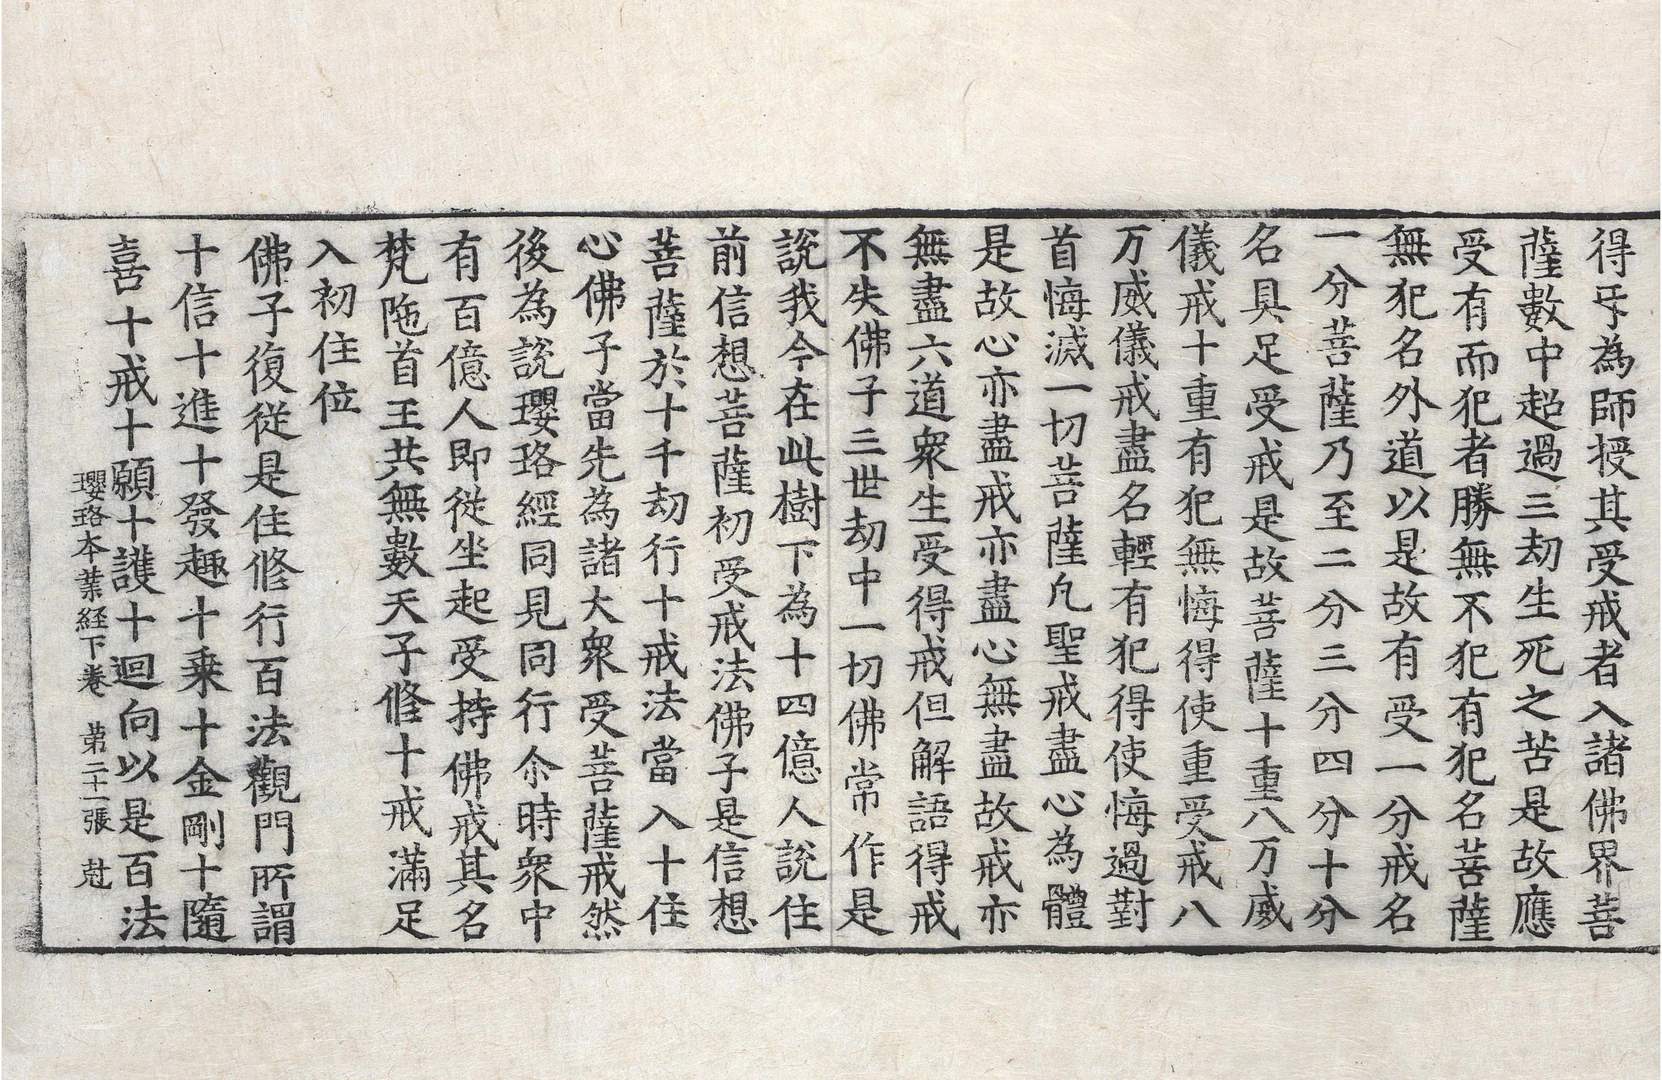 得㸦為師授其受戒者入諸佛界菩
薩數中超過三劫生死之苦是故應
受有而犯者勝無不犯有犯名菩薩
無犯名外道以是故有受一分戒名
一分菩薩乃至二分三分四分十分
名具足受戒是故菩薩十重八万威
儀戒十重有犯無悔得使重受戒八
万威儀戒盡名輕有犯得使悔過對
首悔滅一切菩薩凡聖戒盡心為體
是故心亦盡戒亦盡心無盡故戒亦
無盡六道衆生受得戒但解語得戒
不失佛子三世劫中一切佛常作是
說我今在此樹下為十四億人說住
前信想菩薩初受戒法佛子是信想
菩薩於十千劫行十戒法當入十住
心佛子當先為諸大衆受菩薩戒然
後為說瓔珞經同見同行尒時衆中
有百億人即從坐起受持佛戒其名
梵陁首王共無數天子修十戒滿足
入初住位
佛子復從是住修行百法觀門所謂
十信十進十發趣十乘十金剛十隨
喜十戒十願十護十迴向以是百法
瓔珞本業経下卷 第二十一張